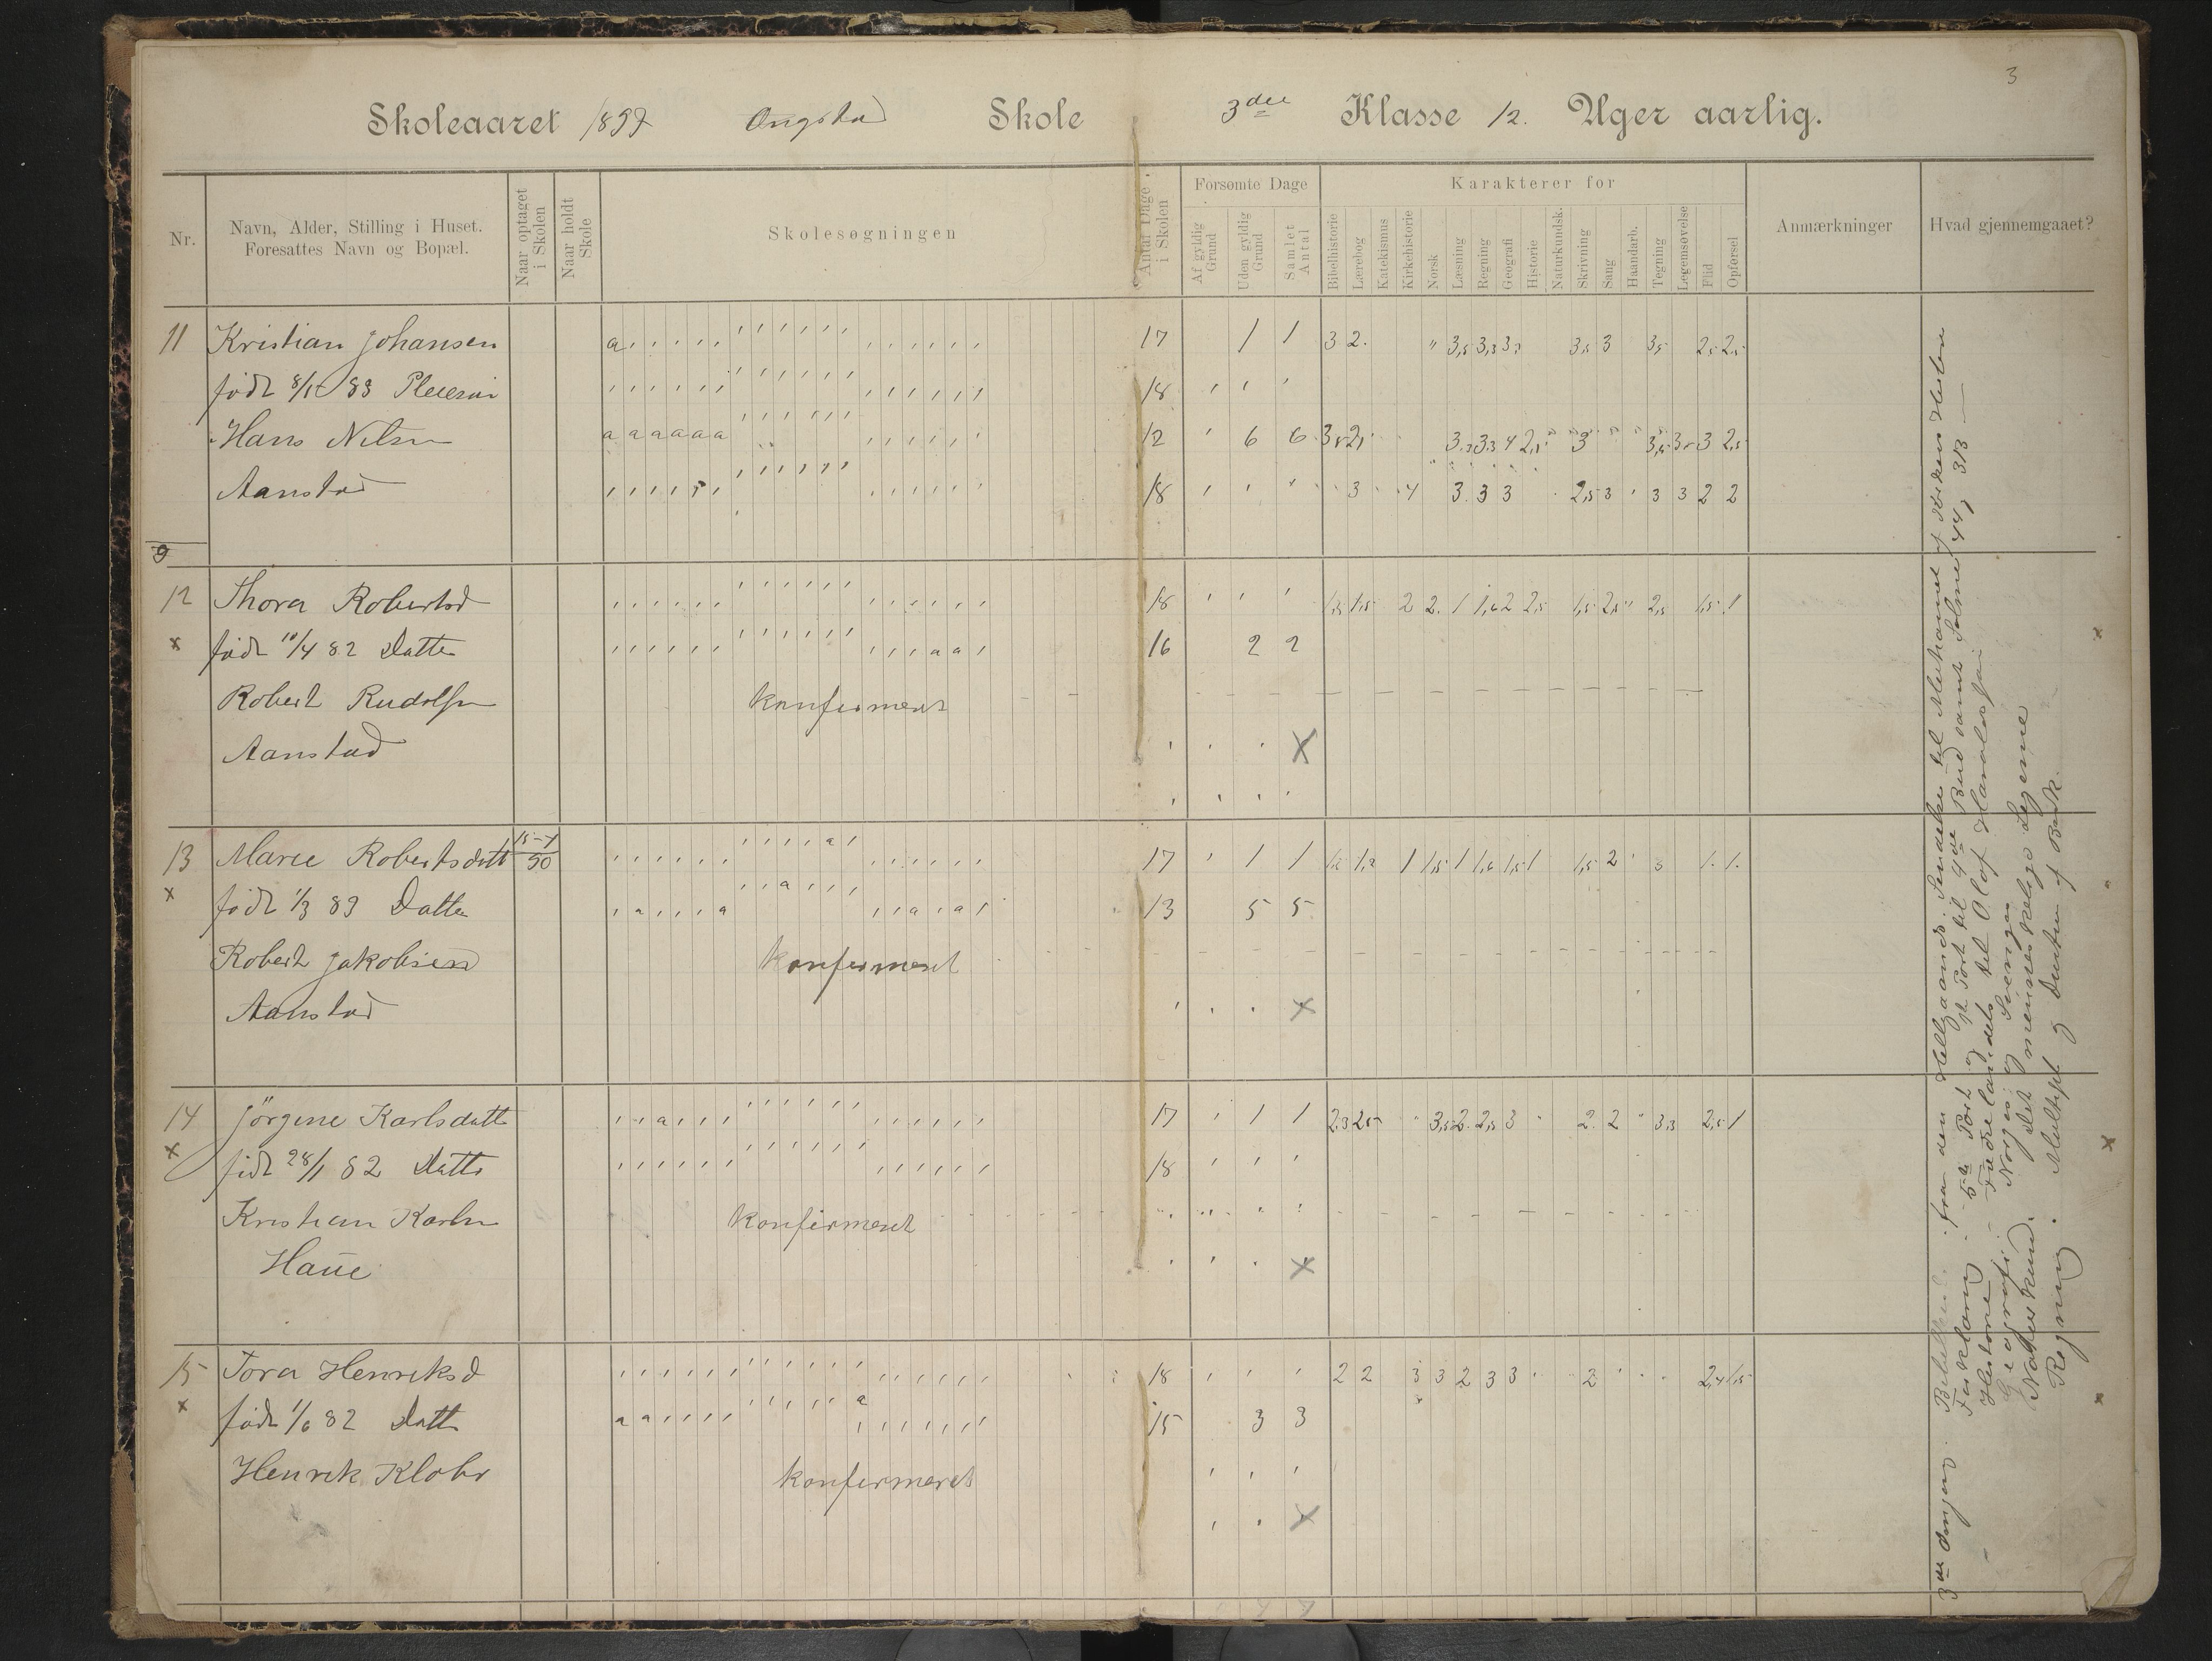 3
Skoleaaret 1897 Ongstad Skole 3die Klasse 12. Uger aarlig.
Nr.
Navn, Alder, Stilling i Huset.
Foresattes Navn og Bopæl.
Naar optaget
i Skolen
Naar holdt
Skole
Skolesøgningen
Antal Dage
i Skolen
Forsømte Dage
Af gyldig
Grund
Uden gyldig
Grund
Samlet
Antal
Karakterer for
Bibelhistorie
Lærebog
Katekismus
Kirkehistorie
Norsk
Læsning
Regning
Geografi
Historie
Naturkundsk.
Skrivning
Sang
Haandarb.
Tegning
Legemsøvelse
Flid
Opførsel
Anmærkninger
Hvad gjennemgaaet?
11 Kristian Johansen a 17 1 1 3 2. 3,5 3,3 3,3 3,5 3 3,5 2,5 2,5
født 83 18
Hans Nilsn a a a a a a 12 6 6 3,5 2,5 3.3 3.3 4 2,5 3 3 2,5
Aanstad 18 3 4 3. 3 3 2,5 3 3 3 2 2
9
12 Thora Robertsd 18 1,5 1,5 2 2. 1 1,6 2 2,5 1,5 2,5 2,5 1,5 1
x født 10/4 82 Datter a a 16 2 2
Robert Rudolfsn konfirmeret
Aanstad X
13 Maree Robertsdatt 15-4 90 a 17 1 1 1 1,5 1 1,6 1,5 1 1,5 2 3 1. 1.
x født 1/3 83 Datter a a a a a 13 5 5
Robert Jakobsen konfirmeret
Aanstad X
14 Jörgine Karlsdatt a 17 1 1 2,3 2,5 3,5 2. 2,5 3 2. 2 3,3 2,5 1
x født 28/1 82 Datte 18
Kristian Karlsn konfirmeret
Haue X
15 Tora Henriksd 18 2 2 3 3 2 3 3 2 2,4 1,5
x født 1/6 82 Datte a a a 15 3 3
Henrik Klohr konfirmeret
X
3die Omgang. fra den Helligaands Sendelse til
Forklaring 5te Part og Part til 9de Bud samt Salme 44, 313
Historie Fædrelandets til Olaf
Geografi Norges og Sveriges
Naturkund. Det menneskelige Legeme
Regning. Multipl. og Division af Brøk.